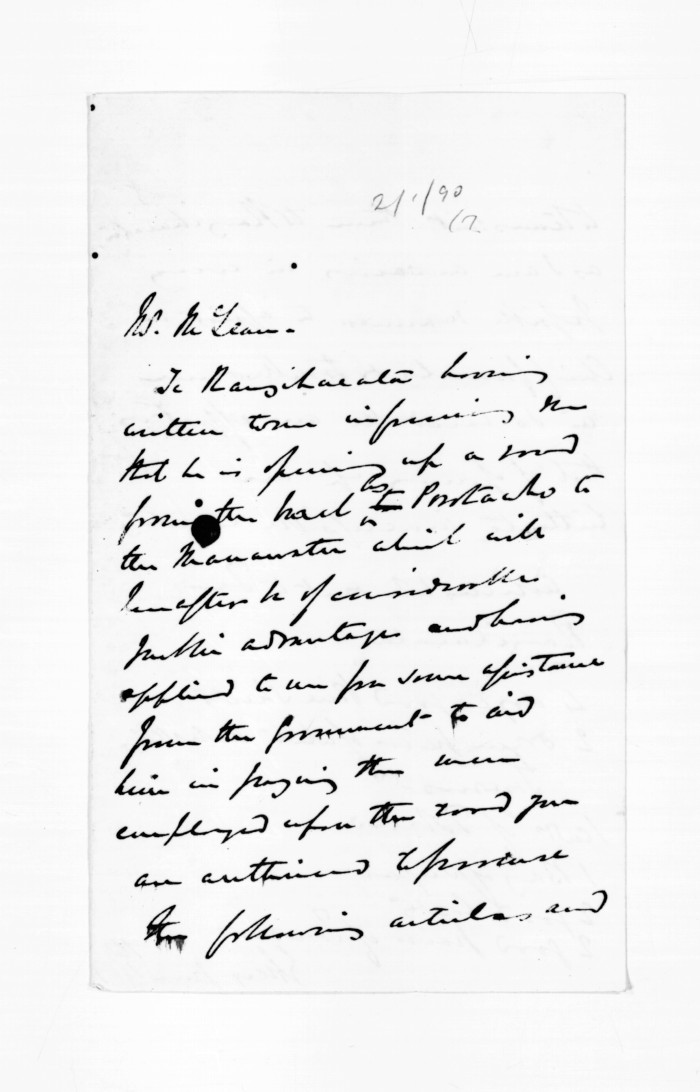 2/1/90
Mr. McLean.
Te Rangihaeata having
written to me informing me
that he is opening up a road
from the back
as
to Porotawhao to
the Manawatu which will
hereafter be of considerable
public advantage and having
applied to me for some assistance
from the Government to aid
him in paying the men
employed upon the road you
are authorized to purchase
the following articles and